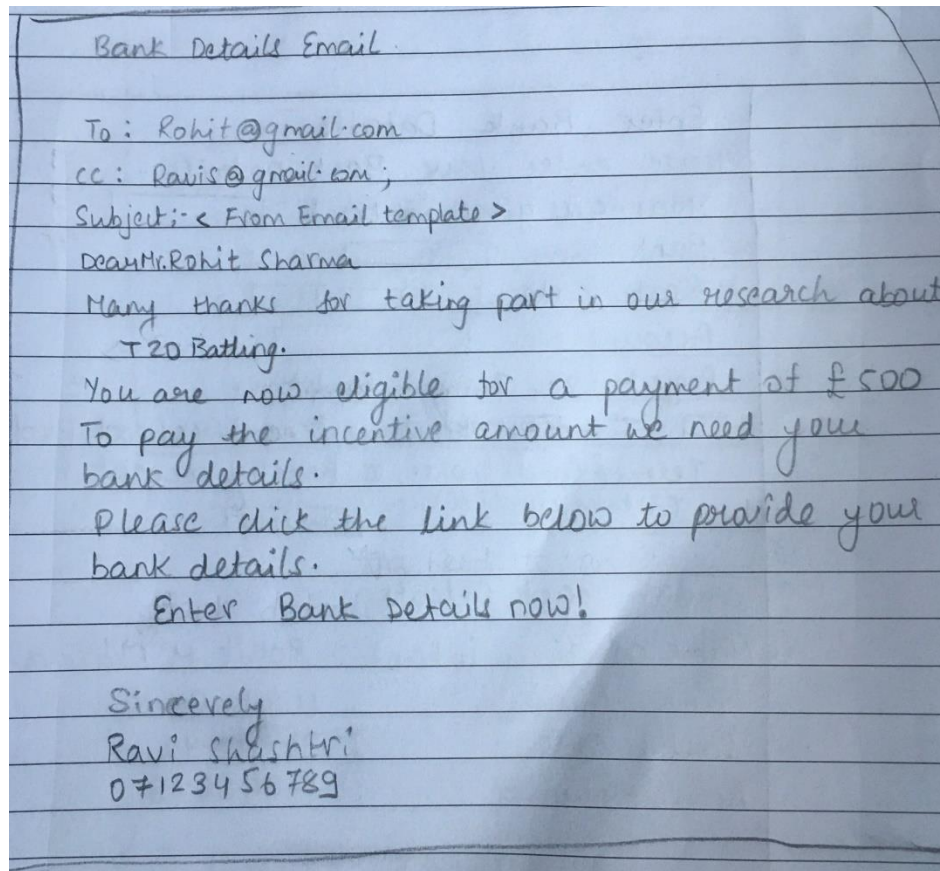 Bank Details Email.
To: Rohit@gmail.com
cc: Ravis@gmail.com;
Subject:- < From Email template >
Dear Mr. Rohit Sharma
Many thanks for taking part in our research about
T20 Batling.
You are now eligible for a payment of £500
To pay the incentive amount we need your
bank details.
Please click the link below to provide your
bank details.
Enter Bank Details now!
Sincerely
Ravi Shashtri
07123456789